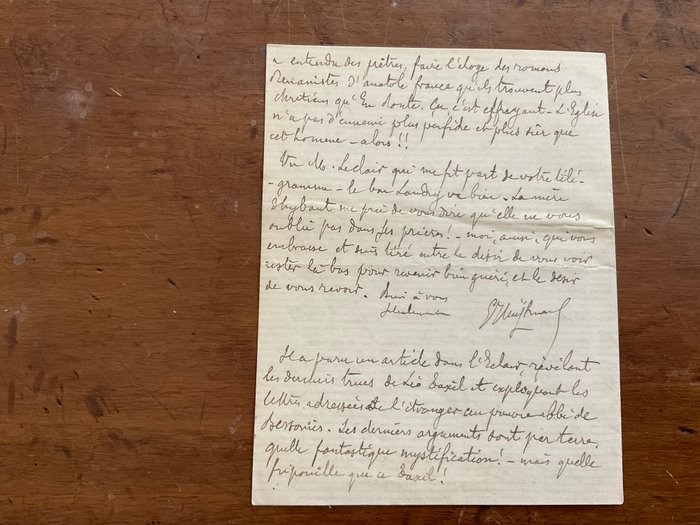 a entendu des prêtres, faire l'éloge des romans
Renanistes d'Anatole France qu'ils trouvent plus
chrétiens qu'En Route. Ça c'est effrayant – L'Eglise
n'a pas d'ennemi plus perfide et plus sûr que
cet homme – alors !!
Vu M. Leclair qui me fit part de votre télé-
-gramme – le bon Landry va bien. La mère
Thybaut me prie de vous dire qu'elle ne vous
oublie pas dans ses prières! – moi, aussi, qui vous
embrasse et suis tiré entre le désir de vous voir
rester là bas pour revenir bien guéri, et le désir
de vous revoir. Bien à vous
filialement
GJHuysmans
Il a paru un article dans l'Eclair, révélant
les derniers trucs de Léo Taxil et expliquant les
lettres adressées de l'étranger au pauvre abbé de
Bessonies. Les derniers arguments sont par terre.
quelle fantastique mystification! – mais quelle
fripouille que ce Taxil!